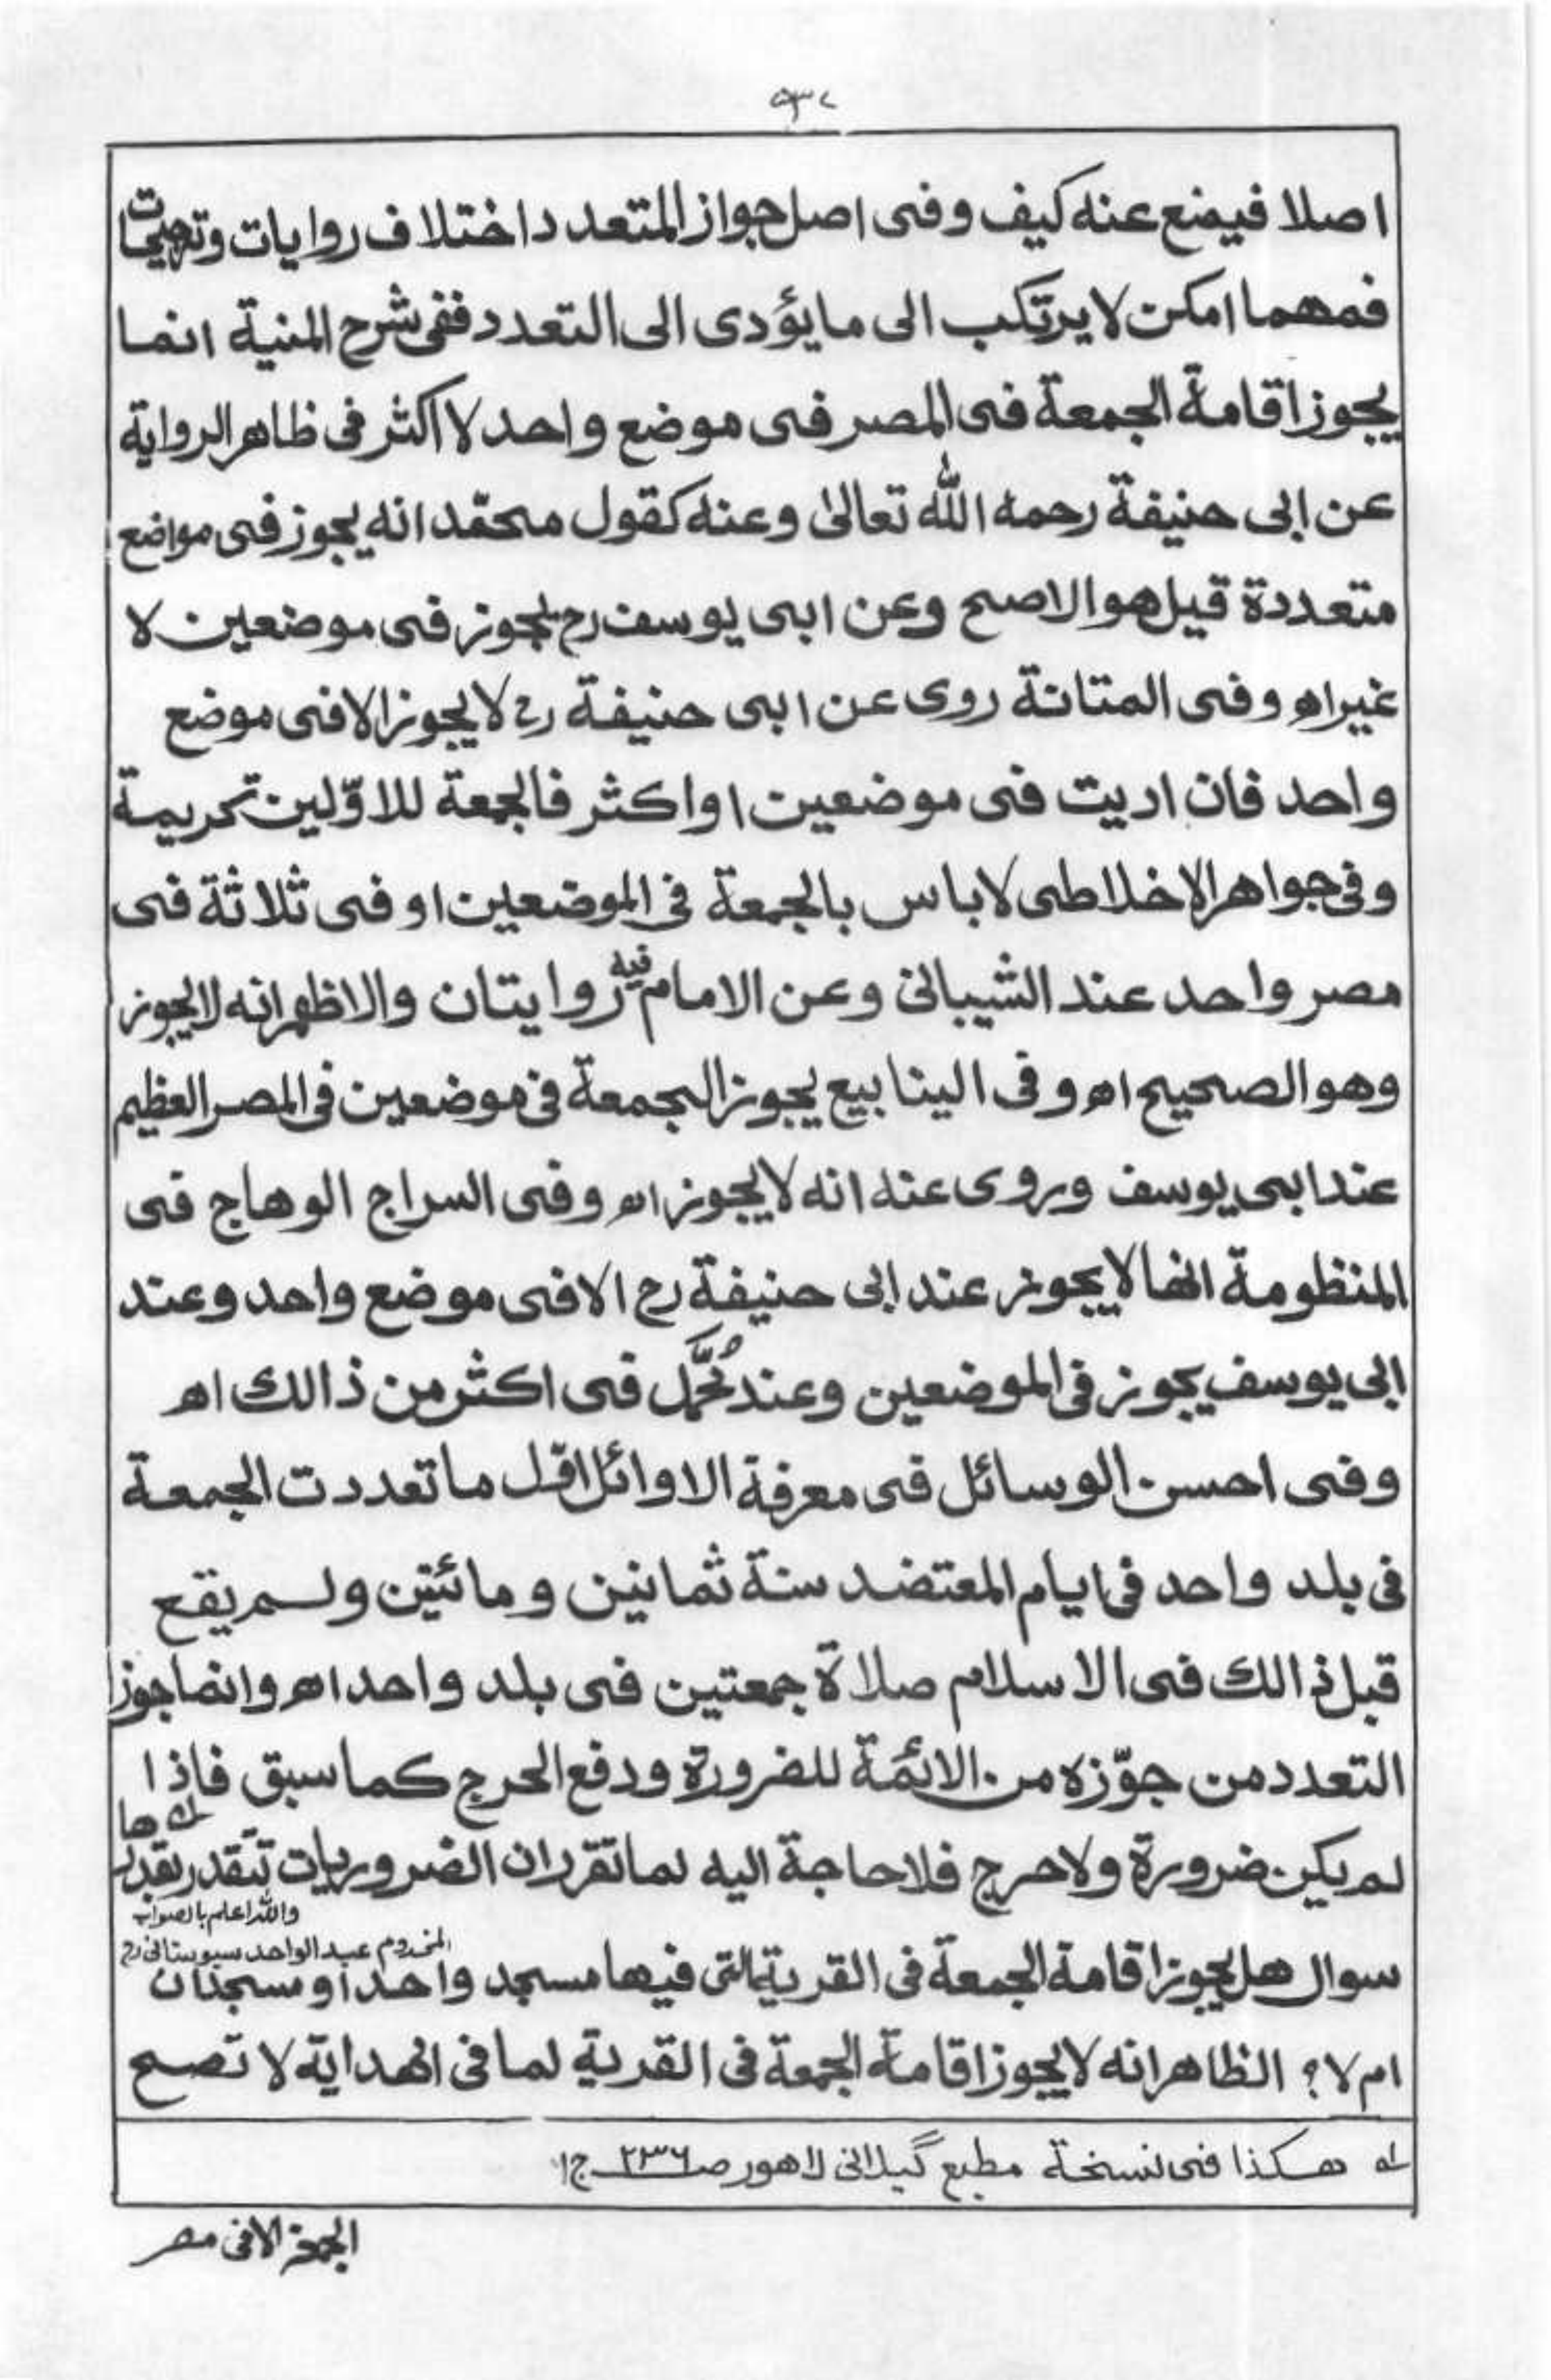 اصلا فيمنع عنه كيف وفى اصل جواز المتعدد اختلاف روايات وترجيحات
فمهما امكن لا يرتكب الى ما يؤدى الى التعدد ففى شرح المنية انما
يجوز اقامة الجمعة فى المصر فى موضع واحد لا اكثر فى ظاهر الرواية
عن ابى حنيفة رحمه الله تعالىٰ وعنه كقول محمّد انه يجوز فى مواضع
متعددة قيل هو الاصح وعن ابى يوسف رح يجوز فى موضعين لا
غير اه وفى المتانة روى عن ابى حنيفة رح لا يجوز الا فى موضع
واحد فان اديت فى موضعين او اكثر فالجمعة للاوّلين تحريمة
وفى جواهر الاخلاطى لا باس بالجمعة فى الموضعين او فى ثلاثة فى
مصر واحد عند الشيبانى وعن الامام فيه روايتان والاظهر انه لا يجوز
وهو الصحيح اه وفى الينابيع يجوز الجمعة فى موضعين فى المصر العظيم
عند ابى يوسف وروى عنه انه لا يجوز اه وفى السراج الوهاج فى
المنظومة انها لا يجوز عند ابى حنيفة رح الا فى موضع واحد وعند
ابى يوسف يجوز فى الموضعين وعند مُحمَّد فى اكثر من ذالك اه
وفى احسن الوسائل فى معرفة الاوائل اوّل ما تعددت الجمعة
فى بلد واحد فى ايام المعتضد سنة ثمانين ومائتين ولم يقع
قبل ذالك فى الاسلام صلاة جمعتين فى بلد واحد اه وانما جوز
التعدد من جوّزه من الائمّة للضرورة ودفع الحرج كما سبق فاذا
لم يكن ضرورة ولا حرج فلا حاجة اليه لما تقرر ان الضروريات تتقدر بقدرها
والله اعلم بالصواب
المخدوم عبد الواحد سيوستانى رح
سوال هل يجوز اقامة الجمعة فى القرية التى فيها مسجد واحد او مسجدان
ام لا؟ الظاهر انه لا يجوز اقامة الجمعة فى القرية لما فى الهداية لا تصح
له هكذا فى نسخة مطبع گيلانى لاهور صـ ٢٣٦ ج ١
الجمعة الا فى مصر